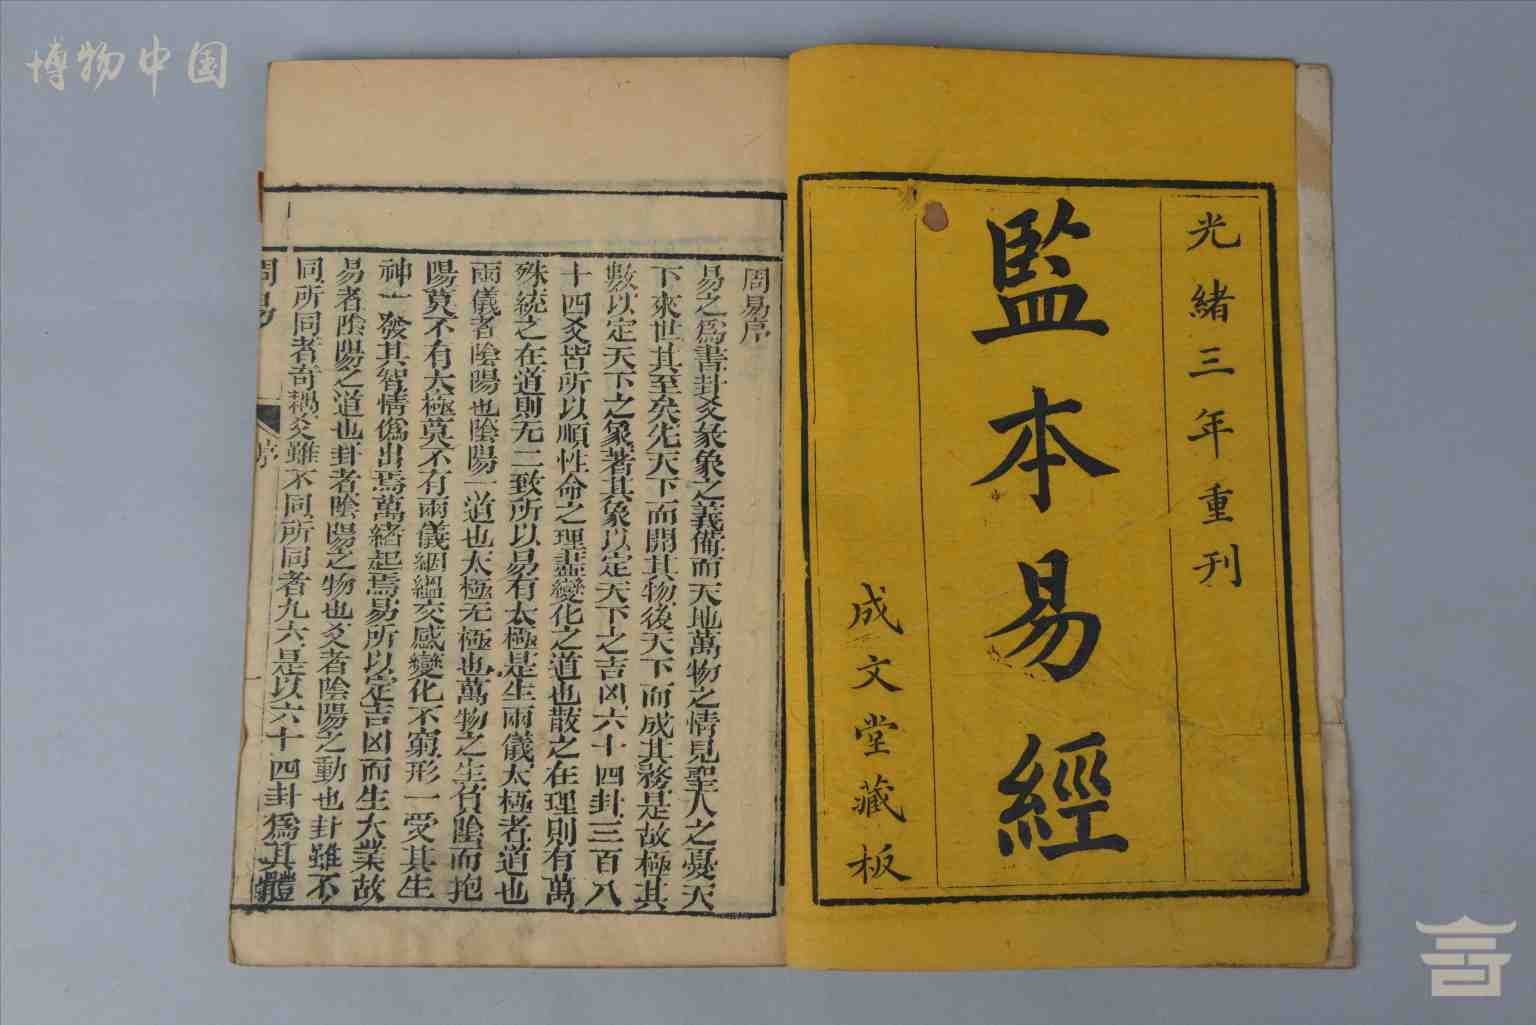 博物中国
光緒三年重刊
監本易經
成文堂藏板
周易序
易之為書卦爻彖象之義備而天地萬物之情見聖人之憂天
下來世其至矣先天下而開其物後天下而成其務是故極其
數以定天下之象著其象以定天下之吉凶六十四卦三百八
十四爻皆所以順性命之理盡變化之道也散之在理則有萬
殊統之在道則无二致所以易有太極是生兩儀太極者道也
兩儀者陰陽也陰陽一道也太極无極也萬物之生負陰而抱
陽莫不有太極莫不有兩儀絪縕交感變化不窮形一受其生
神一發其智情僞出焉萬緒起焉易所以定吉凶而生大業故
易者陰陽之道也卦者陰陽之物也爻者陰陽之動也卦雖不
同所同者奇耦爻雖不同所同者九六是以六十四卦爲其體
周易
序